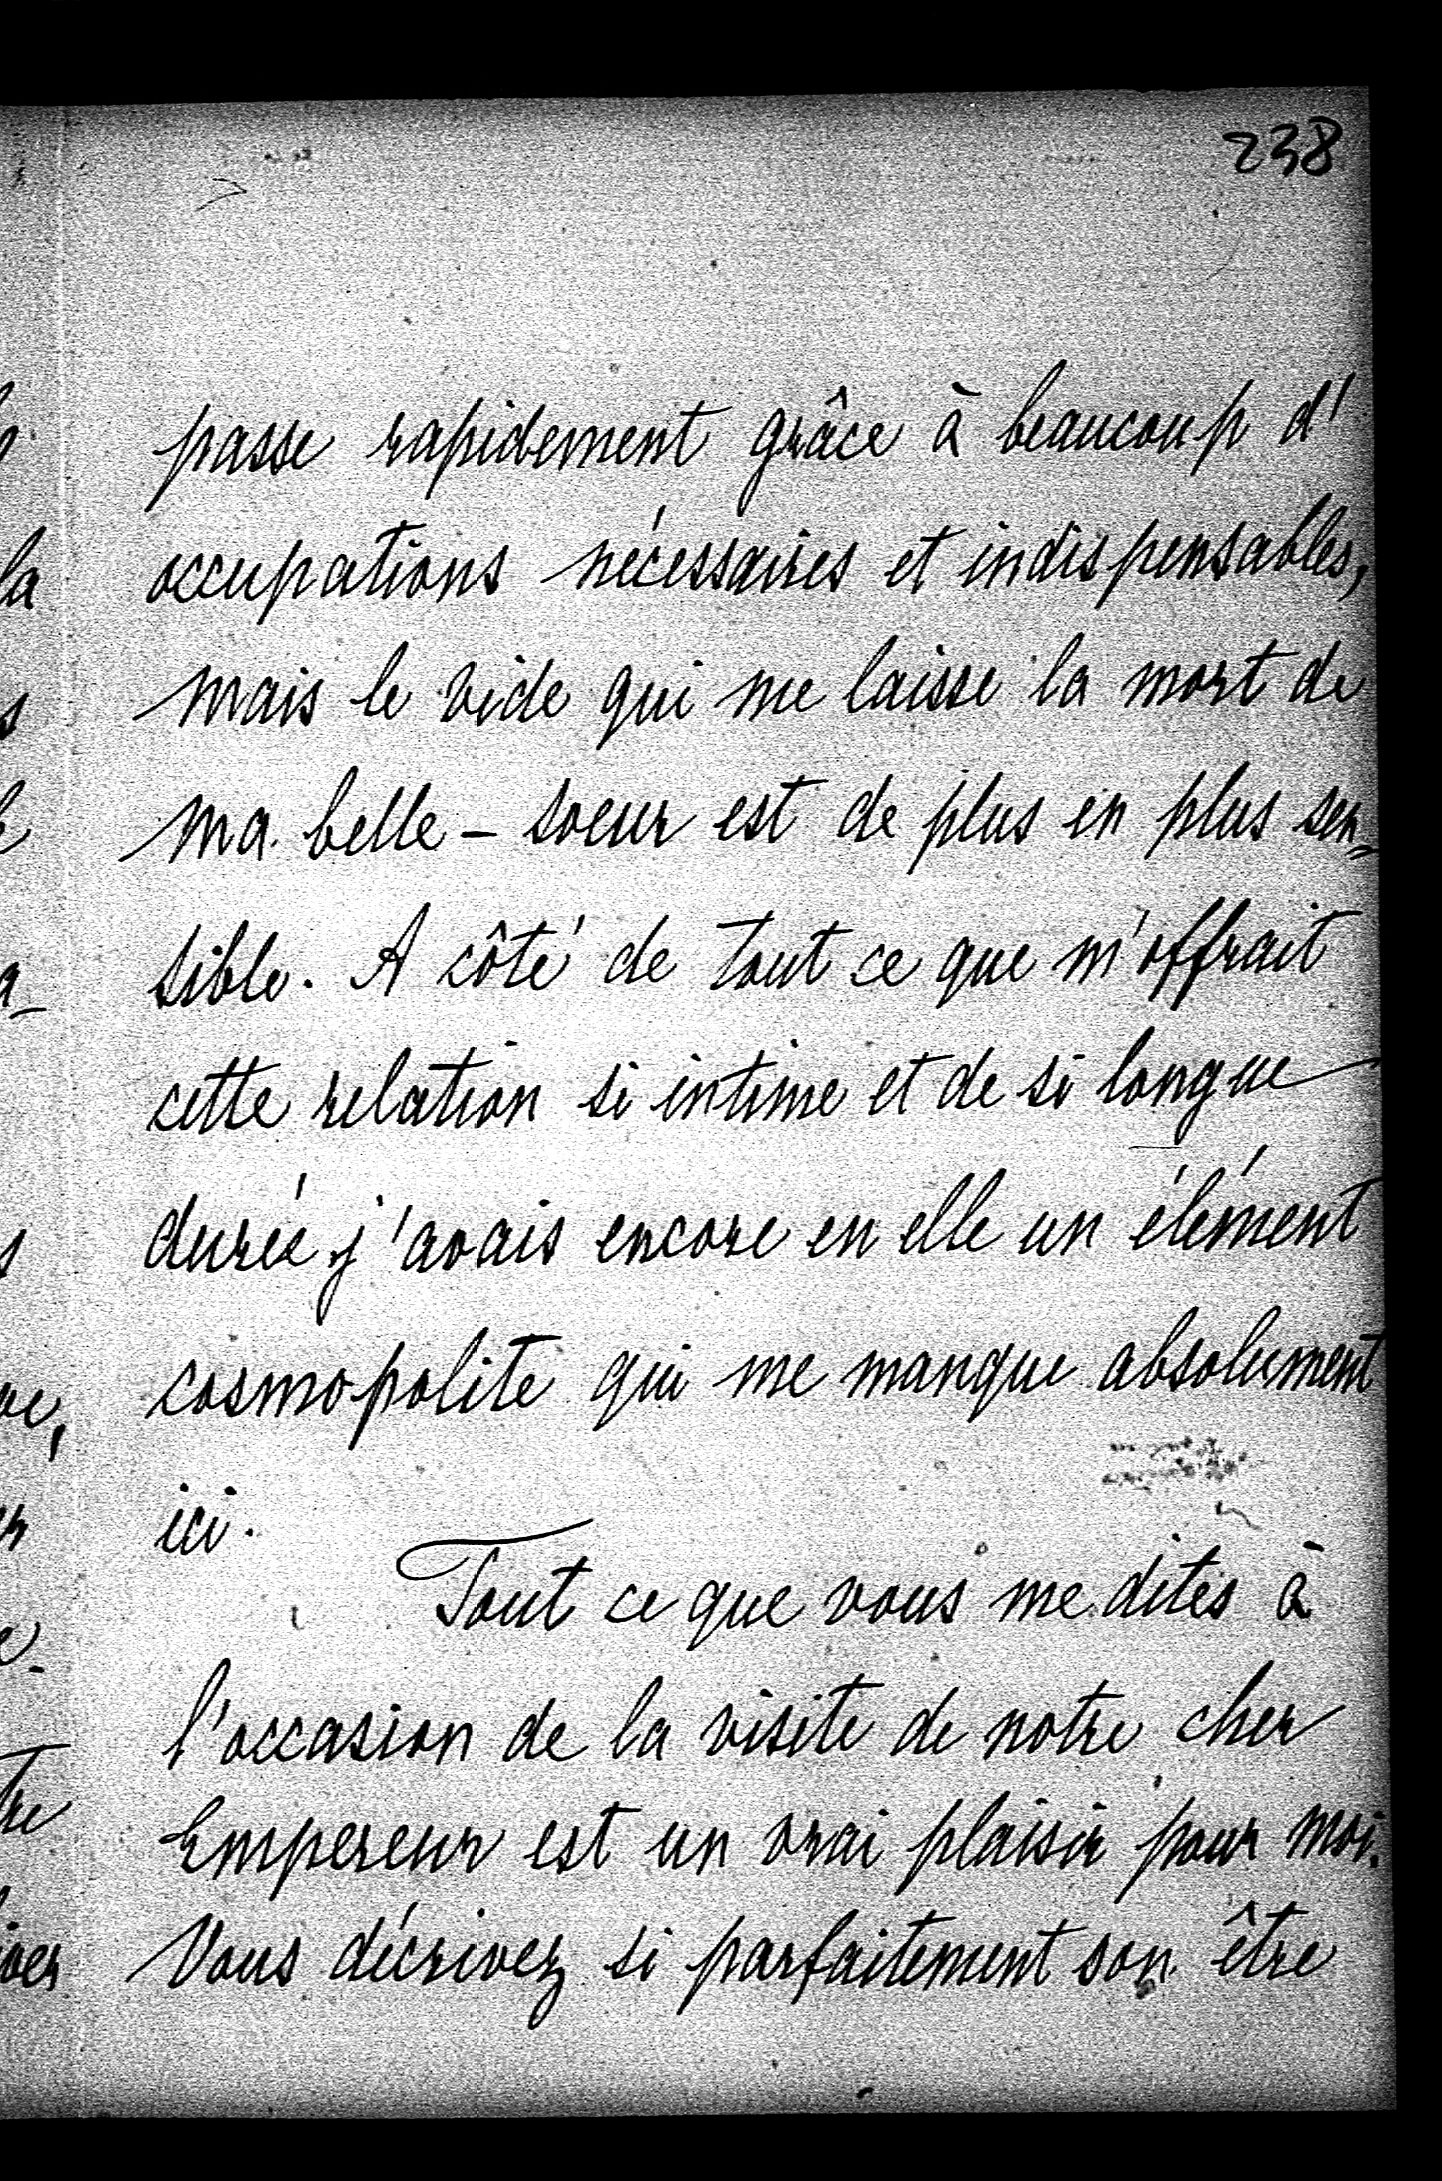 238
passe rapidement grâce à beaucoup d'
occupations nécessaires et indispensables,
mais le vide qui me laisse la mort de
ma belle-soeur est de plus en plus sen=
sible. A côté de tout ce que m'offrait
cette relation si intime et de si longue
durée j'avais encore en elle un élément
cosmopolite qui me manque absolument
ici.
Tout ce que vous me dites à
l'occasion de la visite de notre cher
Empereur est un vrai plaisir pour moi.
Vous décrivez si parfaitement son être